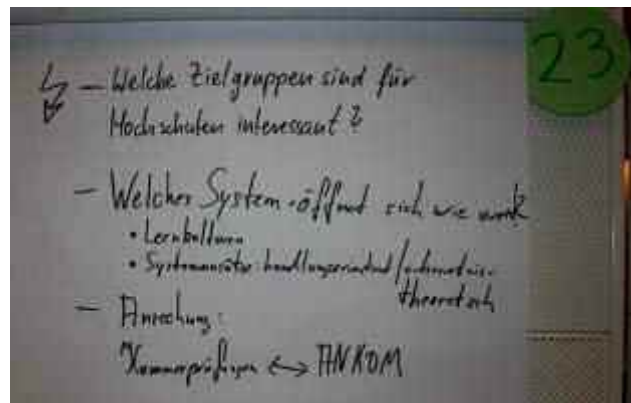 23
– Welche Zielgruppen sind für
Hochschulen interessant?
– Welches System öffnet sich wie weit
• Lernkulturen
• Systemansätze: handlungsorientiert/erkenntnis-
theoretisch
– Anrechnung:
Kammerprüfungen ↔ ANKOM